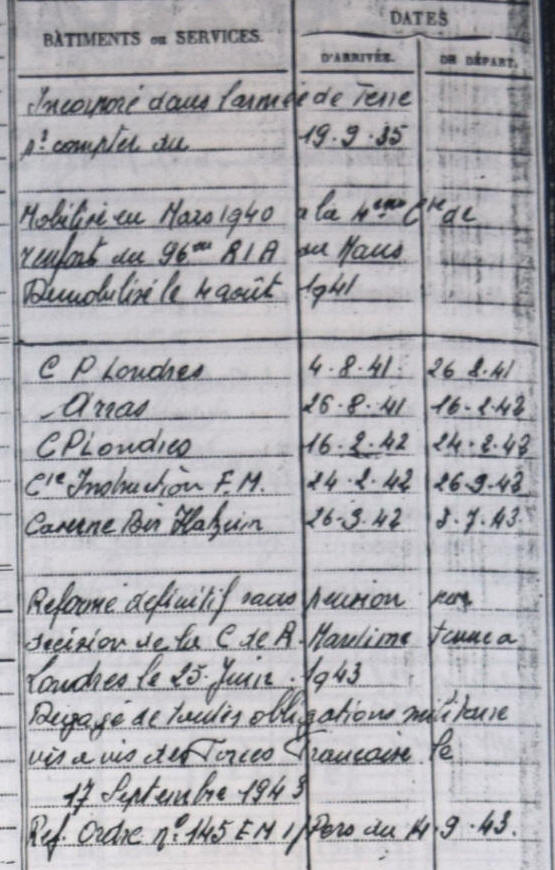 BÂTIMENTS ou SERVICES. DATES
D'ARRIVÉE. DE DÉPART.
Incorporé dans l'armée de Terre
pr compter du 19.9.35
Mobilisé en Mars 1940 à la 4eme Cie de
renfort du 96eme RIA au Mans
Démobilisé le 4 août 1941
C P Londres 4.8.41 26 8.41
Arras 26.8.41 16.2.42
CP Londres 16.2.42 24.2.42
Cie Instruction F.M. 24.2.42 26.9.42
Caserne Bir Hakeim 26.9.42 8.7.43
Reformé definitif sans pension par
décision de la C de R. Maritime tenue a
Londres le 25 Juin 1943
Degagé de toutes obligations militaire
vis a vis des Forces Francaise le
17 Septembre 1943
Ref. Ordre n° 145 EM 1/Pers du 14.9.43.